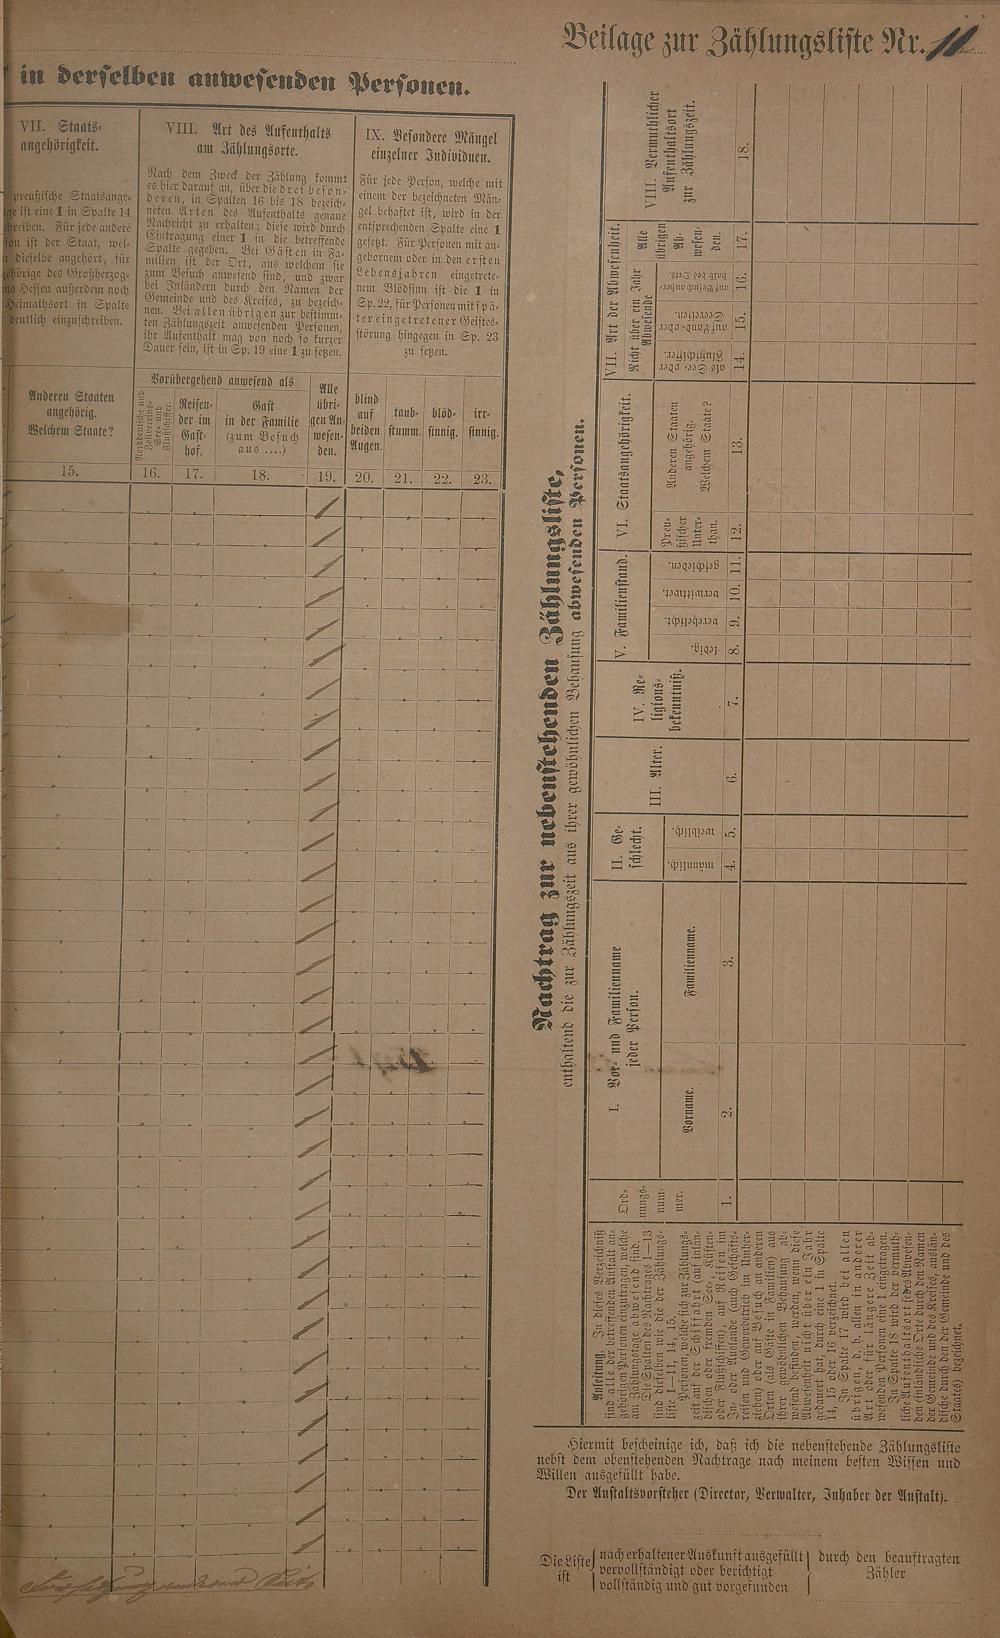 Beilage zur Zählungsliste Nr. 11
in derselben anwesenden Personen.
VII. Staats-
angehörigkeit.
preußische Staatsange-
ist eine 1 in Spalte 14
Für jede andere
ist der Staat, wel-
dieselbe angehört, für
des Großherzog-
Hessen außerdem noch
Heimathsort in Spalte
deutlich einzuschreiben.
Anderen Staaten
angehörig.
Welchem Staate?
15.
VIII. Art des Aufenthalts
am Zählungsorte.
Nach dem Zweck der Zählung kommt
es hier darauf an, über die drei beson-
deren, in Spalten 16 bis 18 bezeich-
neten Arten des Aufenthalts genaue
Nachricht zu erhalten; diese wird durch
Eintragung einer 1 in die betreffende
Spalte gegeben. Bei Gästen in Fa-
milien ist der Ort, aus welchem sie
zum Besuch anwesend sind, und zwar
bei Inländern durch den Namen der
Gemeinde und des Kreises, zu bezeich-
nen. Bei allen übrigen zur bestimm-
ten Zählungszeit anwesenden Personen,
ihr Aufenthalt mag von noch so kurzer
Dauer sein, ist in Sp. 19 eine 1 zu setzen.
Vorübergehend anwesend als
Norddeutsche und
Zollvereins-
See- und
Flußschiffer.
Reisen-
der im
Gast-
hof.
Gast
in der Familie
(zum Besuch
aus ....)
Alle
übri-
gen An-
wesen-
den.
16. 17. 18. 19.
IX. Besondere Mängel
einzelner Individuen.
Für jede Person, welche mit
einem der bezeichneten Män-
gel behaftet ist, wird in der
entsprechenden Spalte eine 1
gesetzt. Für Personen mit an-
gebornem oder in den ersten
Lebensjahren eingetrete-
nem Blödsinn ist die 1 in
Sp. 22, für Personen mit spä-
ter eingetretener Geistes-
störung hingegen in Sp. 23
zu setzen.
blind
auf
beiden
Augen.
taub-
stumm.
blöd-
sinnig.
irr-
sinnig.
20. 21. 22. 23.
Nachtrag zur nebenstehenden Zählungsliste,
enthaltend die zur Zählungszeit aus ihrer gewöhnlichen Behausung abwesenden Personen.
Anleitung. In dieses Verzeichniß
sind alle der betreffenden Anstalt an-
gehörigen Personen einzutragen, welche
am Zählungstage abwesend sind.
Die Spalten des Nachtrages 1—13
sind dieselben wie die der Zählungs-
liste 1—11, 14, 15.
Personen, welche sich zur Zählungs-
zeit auf der Schifffahrt (auf inlän-
dischen oder fremden See-, Küsten-
oder Flußschiffen), auf Reisen im
In- oder Auslande (auch Geschäfts-
reisen und Gewerbetrieb im Umher-
ziehen) oder auf Besuch an anderen
Orten (als Gäste in Familien) aus
ihrer gewöhnlichen Behausung ab-
wesend befinden, werden, wenn diese
Abwesenheit nicht über ein Jahr
gedauert hat, durch eine 1 in Spalte
14, 15 oder 16 verzeichnet.
In Spalte 17 wird bei allen
übrigen, d. h. allen in anderer
Art oder für längere Zeit ab-
wesenden Personen eine 1 eingetragen.
In Spalte 18 wird der vermuth-
liche Aufenthaltsort jedes Abwesen-
den (inländische Orte durch den Namen
der Gemeinde und des Kreises, auslän-
dische durch den der Gemeinde und des
Staates) bezeichnet.
Ord-
nungs-
num-
mer.
1.
I. Vor- und Familienname
jeder Person.
Vorname.
Familienname.
2. 3.
II. Ge-
schlecht.
männlich.
weiblich.
4. 5.
III. Alter.
6.
IV. Re-
ligions-
bekenntniß.
7.
V. Familienstand.
ledig.
verehelicht.
verwittwet.
geschieden.
8. 9. 10. 11.
VI. Staatsangehörigkeit.
Preu-
ßischer
Unter-
than.
Anderen Staaten
angehörig.
Welchem Staate?
12. 13.
VII. Art der Abwesenheit.
Nicht über ein Jahr
Abwesende
als See- oder
Flußschiffer.
auf Land- oder
Seereisen.
auf Besuch außer-
halb des Orts.
Alle
übrigen
Ab-
wesen-
den.
14. 15. 16. 17.
VIII. Vermuthlicher
Aufenthaltsort
zur Zählungszeit.
18.
Hiermit bescheinige ich, daß ich die nebenstehende Zählungsliste
nebst dem obenstehenden Nachtrage nach meinem besten Wissen und
Willen ausgefüllt habe.
Der Anstaltsvorsteher (Director, Verwalter, Inhaber der Anstalt).
Die Liste
ist
nach erhaltener Auskunft ausgefüllt
vervollständigt oder berichtigt
vollständig und gut vorgefunden
durch den beauftragten
Zähler